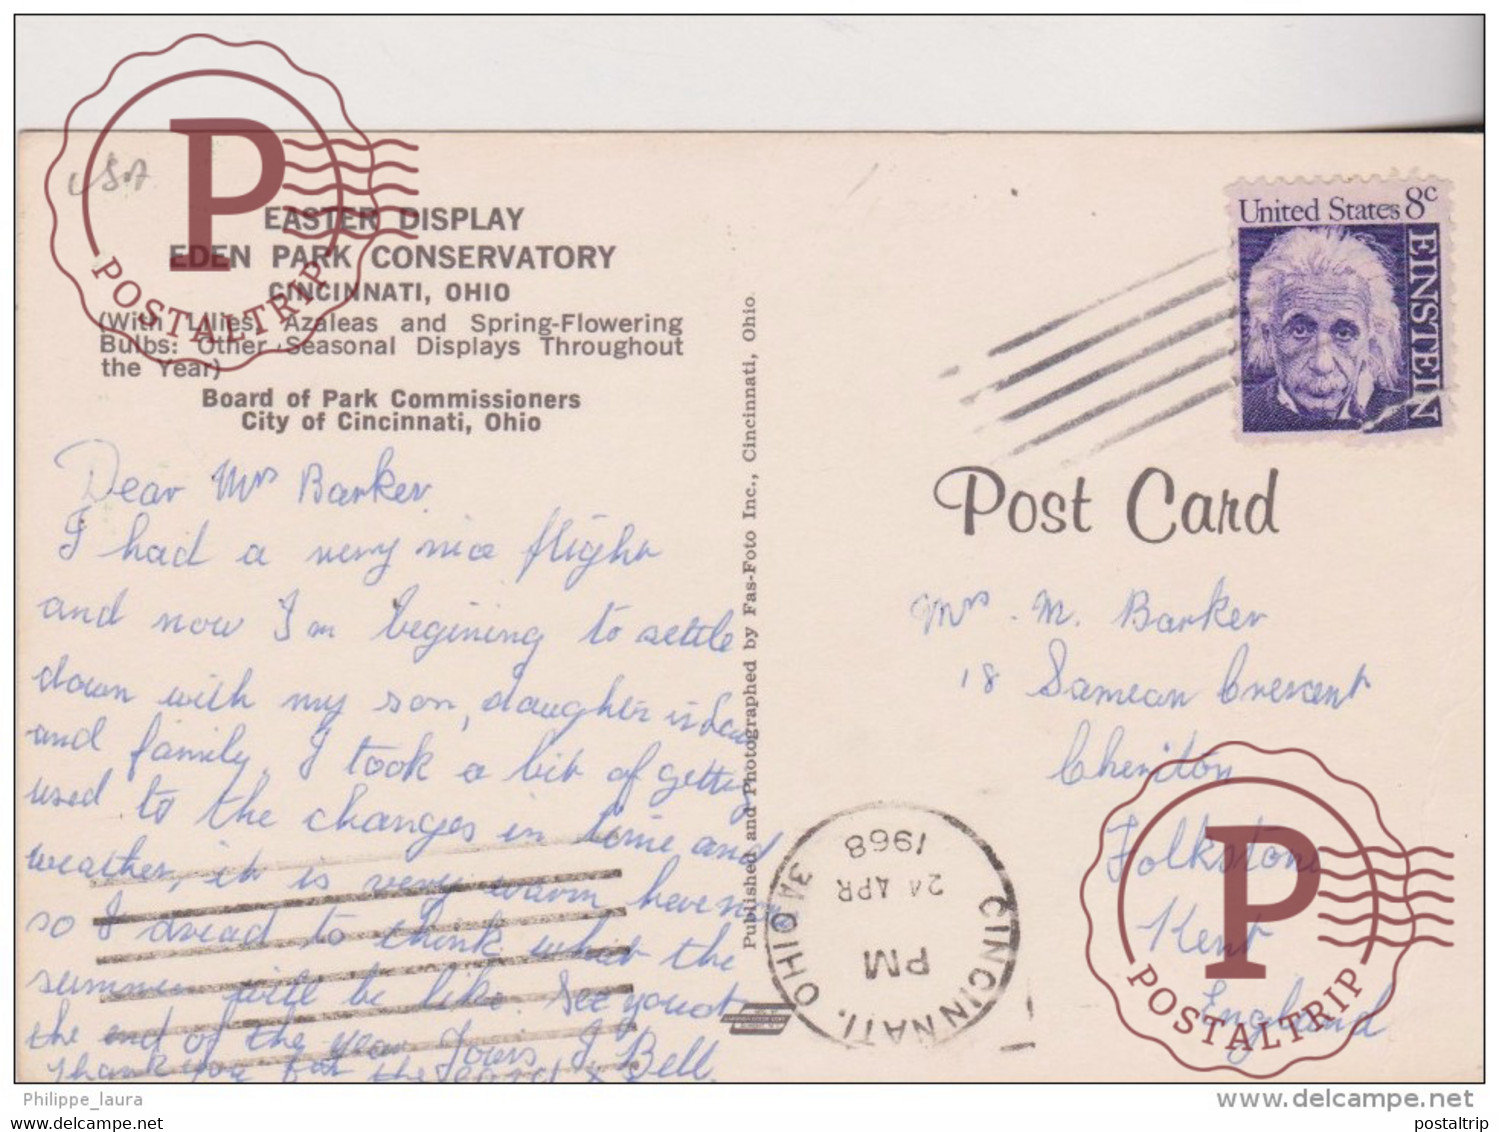 USA
P
POSTALTRIP
EASTER DISPLAY
EDEN PARK CONSERVATORY
CINCINNATI, OHIO
(With Lilies, Azaleas and Spring-Flowering
Bulbs: Other Seasonal Displays Throughout
the Year)
Board of Park Commissioners
City of Cincinnati, Ohio
Dear Mrs Barker.
I had a very nice flight
and now I'm begining to settle
down with my son, daugher in law
and family, I took a bit of getting
used to the changes in time and
weather, it is very warm here now
so I dread to think what the
summer will be like. See you at
the end of the year Yours J Bell.
Thank you for the card
Published and Photographed by Fas-Foto Inc., Cincinnati, Ohio.
United States 8c
EINSTEIN
Post Card
Mrs. M. Barker
18 Samean Crescent
Cheriton
Folkstone
Kent
England
CINCINNATI, OHIO
PM
24 APR
1968
P
POSTALTRIP
Philippe_laura
www.delcampe.net
postaltrip.com
postaltrip